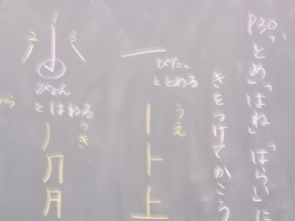 P30「とめ」「はね」「はらい」に
きをつけてかこう
ぴたっ
ととめる
うえ
一
丨
卜
上
小
ぴょん
とはねる
つき
丿
冂
月